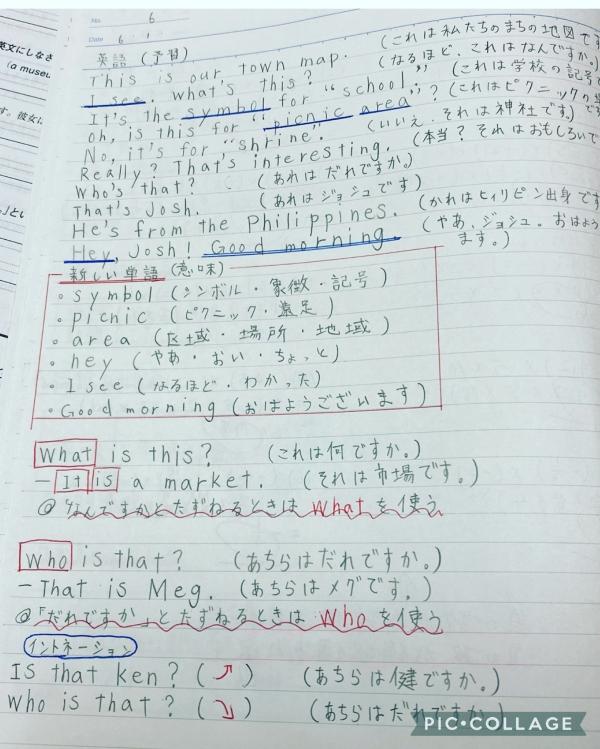 英文にしなさ
(a museu
す。彼女に
No.
6
Date 6 ・ 1 ・
英語 (予習)
This is our town map. (これは私たちのまちの地図です
I see, what's this? (なるほど、これはなんですか。)
It's the symbol for "school." (これは学校の記号で
Oh, is this for "picnic area"? (これはピクニックの
No, it's for "shrine." (いいえ、それは神社です。)
Really? That's interesting. (本当? それはおもしろいで
Who's that? (あれはだれですか。)
That's Josh. (あれはジョシュです)
He's from the Philippines. (かれはヒィリピン出身です
Hey, Josh! Good morning. (やあ、ジョシュ。おはよう
ます。)
新しい単語 (意味)
・symbol (シンボル・象徴・記号)
・picnic (ピクニック・遠足)
・area (区域・場所・地域)
・hey (やあ・おい・ちょっと)
・I see (なるほど・わかった)
・Good morning (おはようございます)
What is this? (これは何ですか。)
— It is a market. (それは市場です。)
@「なんですか」とたずねるときは What を使う
Who is that? (あちらはだれですか。)
— That is Meg. (あちらはメグです。)
@「だれですか」とたずねるときは Who を使う
イントネーション
Is that ken? (↗) (あちらは健ですか。)
Who is that? (↘) (あちらはだれですか。)
PIC•COLLAGE